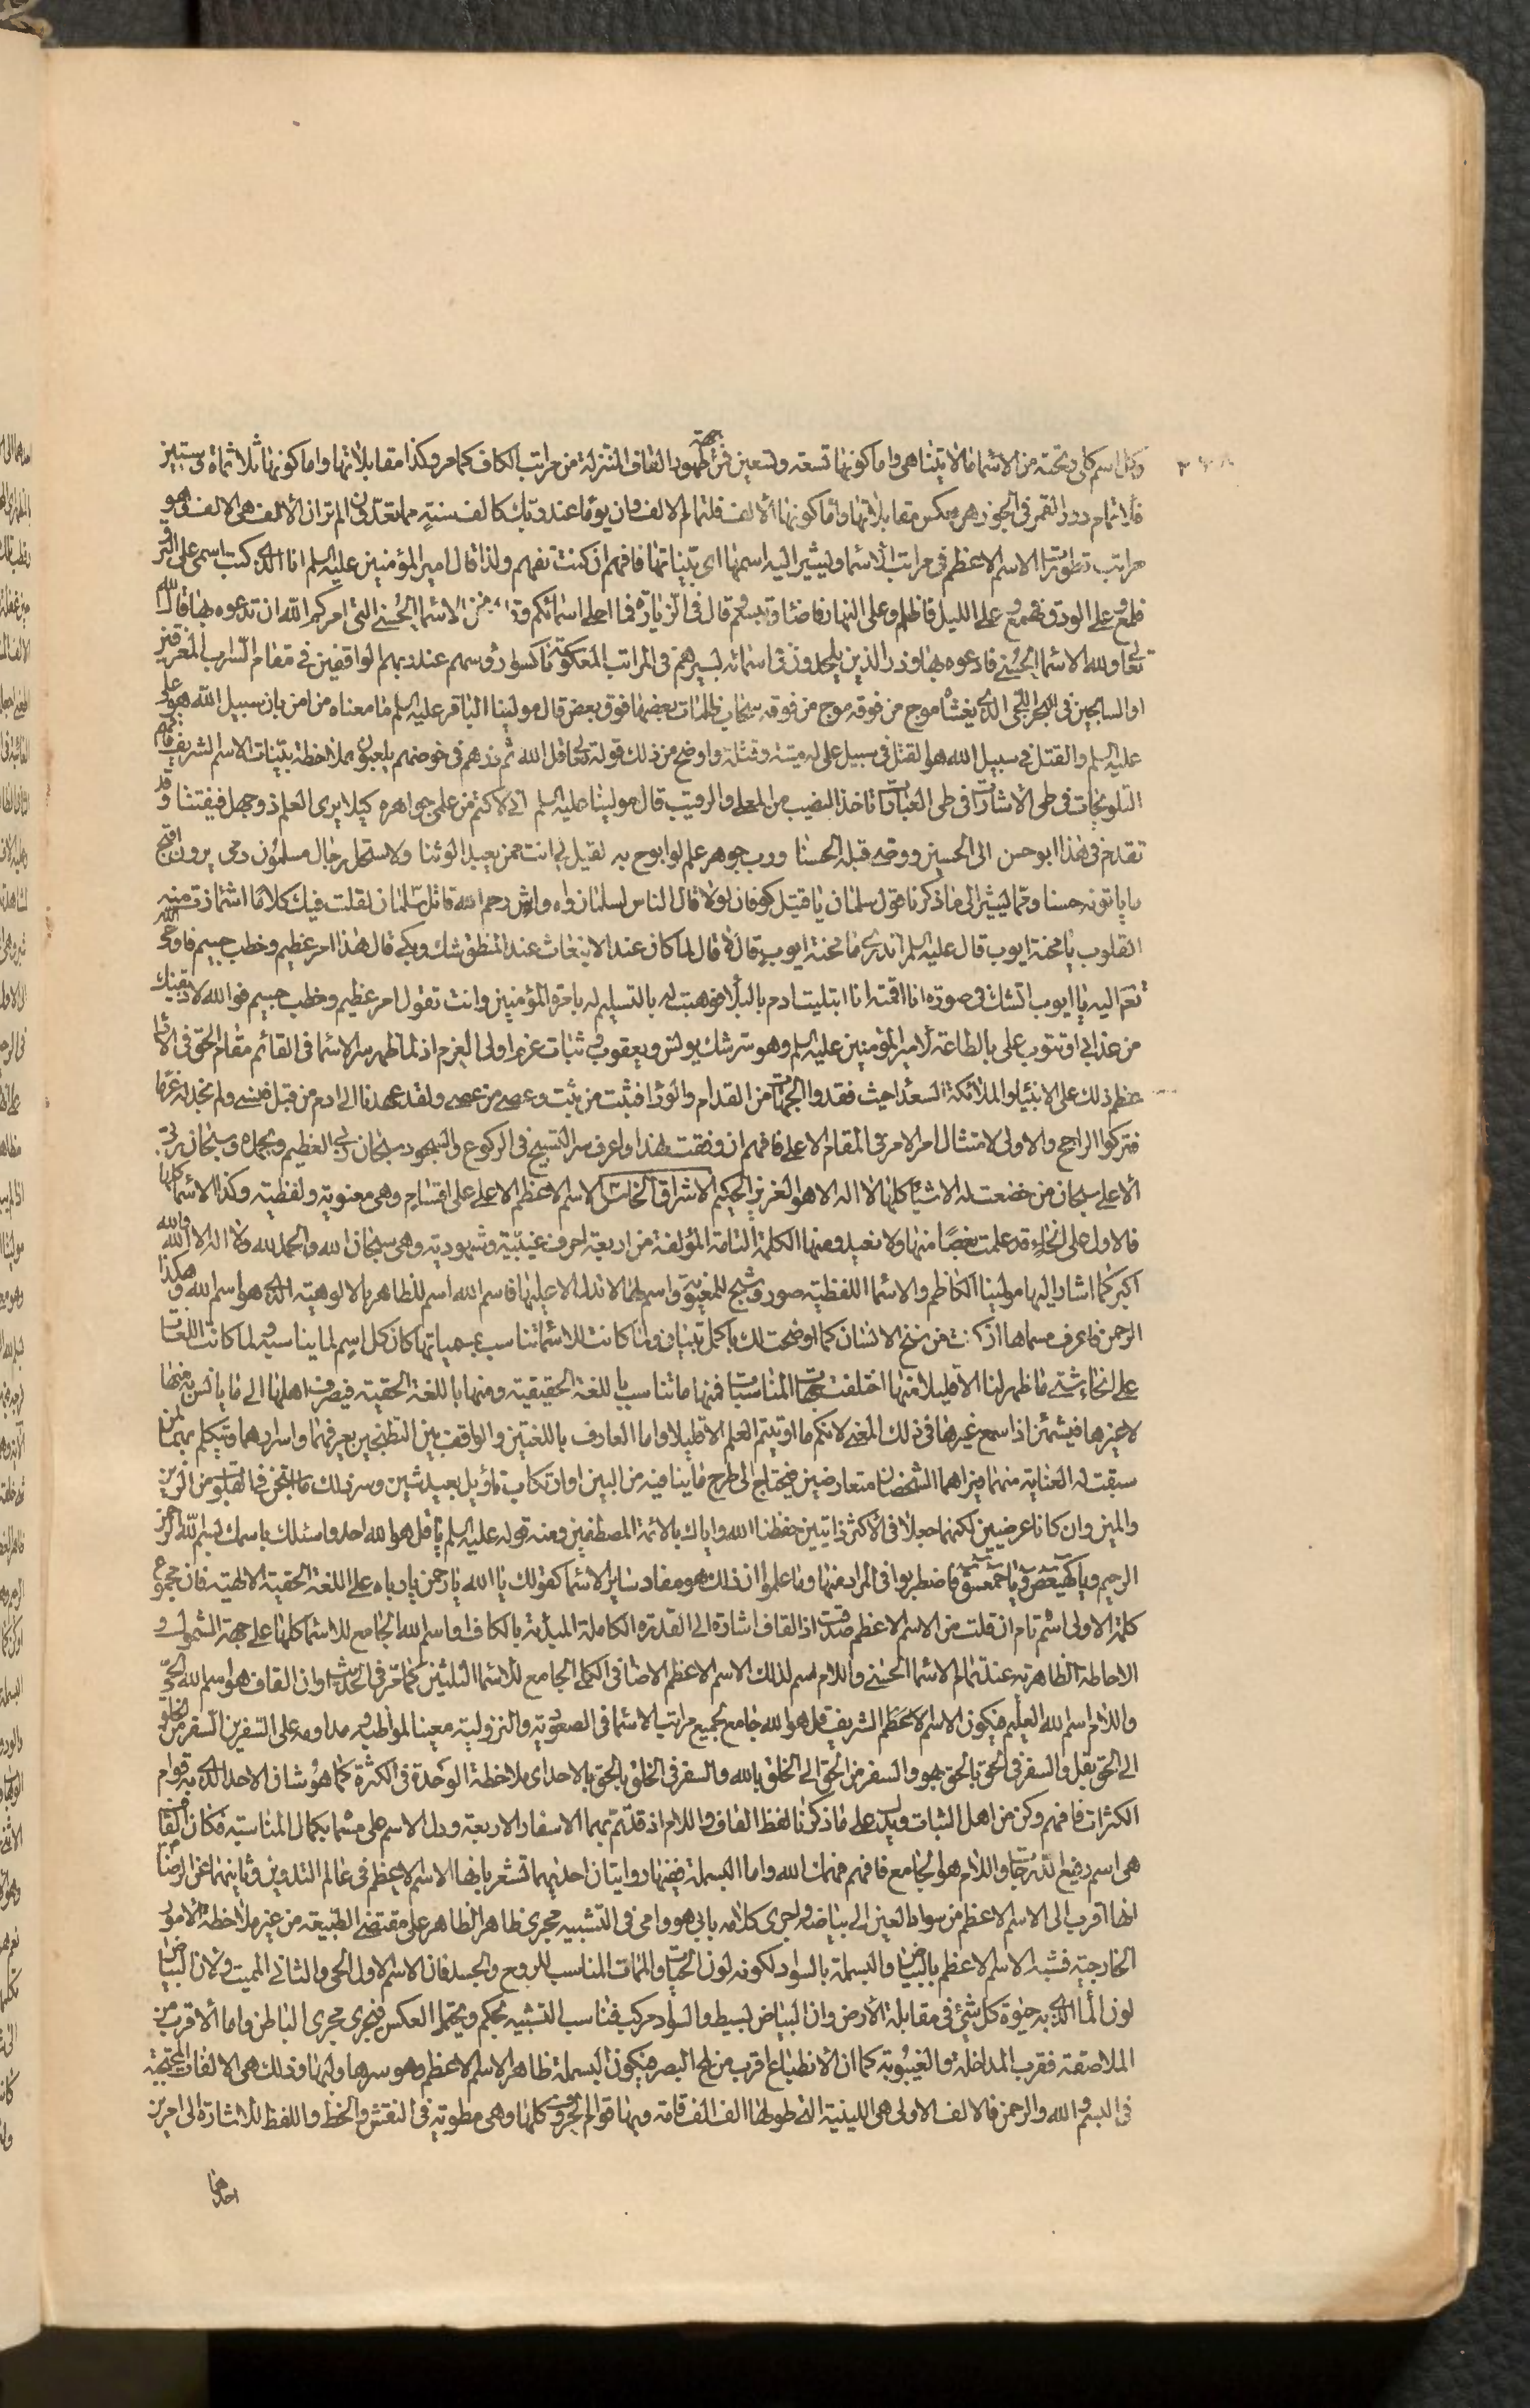 وكل اسم كلى وتحته من الاسماء ما لا يتناهى واما كونها تسعة وتسعين فمن جهة ظهور القاف المتنزلة من مراتب الكاف كما مر وكذا مقابلاتها واما كونها ثلاثمائة وستين
٣٧٨
فلاتمام دور القمر فى الجوزهر بعكس مقابلاتها واما كونها الالف فلتمام الالف وان يوما عند ربك كالف سنة مما تعدون الم تر ان الالف هى الالف فى هو
مراتب تطورات الاسم الاعظم فى مراتب الاسماء ويشير اليه اسمها اى بيناتها فافهم ان كنت تفهم ولذا قال امير المؤمنين عليه السلم انا الذى كتب اسمى على البرق
فلمع وعلى الودق فهمع وعلى الليل فاظلم وعلى النهار فاضاء وتبسم قال فى الزيارة فما احلى اسمائكم نحن الاسماء الحسنى التى امركم الله ان تدعوه بها قال الله
تعالى ولله الاسماء الحسنى فادعوه بها وذروا الذين يلحدون فى اسمائه لسيرهم فى المراتب المعكوسة ناكسوا رؤسهم عند ربهم الواقفين فى مقام السراب المغرقين
او السابحين فى البحر اللجى الذى يغشاه موج من فوقه موج من فوقه سحاب ظلمات بعضها فوق بعض قال مولينا الباقر عليه السلم ما معناه من امن بان سبيل الله هو على
عليه السلم والقتل فى سبيل الله هو القتل فى سبيل على له ميتة وقتلة واوضح من ذلك قوله تعالى قل الله ثم ذرهم فى خوضهم يلعبون بملاحظة بينات الاسم الشريف فافهم
التلويحات فى طى الاشارات فى طى العبارات تاخذ النصيب من المعلى والرقيب قال مولينا عليه السلم انى لاكتم من علمى جواهره كيلا يرى العلم ذو جهل فيفتتنا وقد
تقدم فى هذا ابو حسن الى الحسين ووصى قبله الحسنا ورب جوهر علم لو ابوح به لقيل لى انت ممن يعبد الوثنا ولاستحل رجال مسلمون دمى يرون اقبح
ما ياتونه حسنا ومما يشير الى ما ذكرنا قول سلمان يا قتيل كوفان لولا قال الناس لسلمان واه واش رحم الله قاتل سلمان لقلت فيك كلاما اشمازت منه
القلوب يا محنة ايوب قال عليه السلم اتدرى ما محنة ايوب قال لا قال لما كان عند الانبعاث عند المنطق شك وبكى قال هذا امر عظيم وخطب جسيم فاوحى الله
تعالى اليه يا ايوب اتشك فى صورة انا اقمته انا ابتليت ادم بالبلاء فوهبته له بالتسليم له بامرة المؤمنين وانت تقول امر عظيم وخطب جسيم فوالله لاذيقنك
من عذابى او تتوب على بالطاعة لامير المؤمنين عليه السلم وهو سر شك يونس ويعقوب وثبات عزم اولى العزم اذ لما ظهر سر الاسماء فى القائم مقام الحق فى الاداء
عظم ذلك على الانبياء والملائكة السعداء حيث فقدوا الجهات من القدام والوراء فثبت من ثبت وعصى من عصى ولقد عهدنا الى ادم من قبل فنسى ولم نجد له عزما
فتركوا الراجح والاولى لامتثال امر الامر فى المقام الاعلى فافهم ان وفقت لهذا واعرف سر التسبيح فى الركوع والسجود سبحان ربى العظيم وبحمده وسبحان ربى
الاعلى سبحان من خضعت له الاشياء كلها لا اله الا هو العزيز الحكيم الاشراق الخامس الاسم الاعظم الاعلى على اقسام وهى معنوية ولفظية وكذا الاسماء كلها
فالاول على انحاء قد علمت بعضا منها ولا نعيد ومنها الكلمة التامة المؤلفة من اربعة احرف غيبية وشهودية وهى سبحان الله والحمد لله ولا اله الا الله والله
اكبر كما اشار اليها مولينا الكاظم والاسماء اللفظية صور وشبح للمعنوية واسم لها لا تدل الا عليها فاسم الله اسم للظاهر بالالوهية الذى هو اسم الله وهكذا
الرحمن فاعرف مسماها اذ كنت من نخ الانسان كما اوضحت لك باكمل تبيان ولما كانت للاسماء تناسب بمسمياتها كان كل اسم لما يناسبه ولما كانت اللغات
على انحاء شتى ما ظهر لنا الا قليلا منها اختلفت جهات المناسبات فمنها ما تناسب باللغة الحقيقية ومنها باللغة الحقية فيصرف اهلها الى ما يانس به منها
لا غيرها فيشمئز اذا سمع غيرها فى ذلك المعنى لانكم ما اوتيتم العلم الا قليلا واما العارف باللغتين والواقف بين التطنجين يعرفهما واسرارهما ويتكلم بهما لمن
سبقت له العناية منهما فيراهما الشخصان متعارضين فيحتاج الى طرح ما ينافيه من البين او ارتكاب تاويل بعيد شين وسر ذلك ما انجعل فى القلوب من الرين
والمين وان كانا عرضيين لكنهما جعلا فى الاكثر ذاتيين حفظنا الله واياك بالائمة المصطفين ومنه قوله عليه السلم يا قل هو الله احد واسئلك باسمك بسم الله الرحمن
الرحيم ويا كهيعص ويا حمعسق فاضطربوا فى المراد منها وما علموا ان ذلك هو مفاد ساير الاسماء كقولك يا الله يا رحمن يا رباه على اللغة الحقية الالهية فان مجموع
كلمة الاولى اسم تام ان قلت من الاسم الاعظم صدقت اذ القاف اشارة الى القدرة الكاملة المبدئة بالكاف او اسم الله الجامع للاسماء كلها على جهة الشمول و
الاحاطة الظاهرية عند تمام الاسماء الحسنى واللام اسم لذلك الاسم الاعظم الاضافى الكلى الجامع للاسماء الثلثين كما مر فى الحديث او ان القاف هو اسم الله الحق
واللام اسم الله العليم فيكون الاسم الاعظم الشريف قل هو الله جامع لجميع مراتب الاسماء فى الصعودية والنزولية معينا لمواظبه ومداومه على السفرين السفر من الخلق
الى الحق بقل والسفر فى الحق بالحق بهو والسفر من الحق الى الخلق بالله والسفر فى الخلق بالحق بالاحد اى ملاحظة الوحدة فى الكثرة كما هو شان الاحد الذى به قوام
الكثرات فافهم وكن من اهل الثبات ويدل على ما ذكرنا لفظ القاف واللام اذ قد تم بهما الاسفار الاربعة ودل الاسم على مسماه بكمال المناسبة فكان القاف
هى اسم رفيع الدرجات واللام هو الجامع فافهم فهمك الله واما البسملة ففيها روايتان احديهما تشعر بانها الاسم الاعظم فى عالم التدوين وثانيهما عن الرضا
انها اقرب الى الاسم الاعظم من سواد العين الى بياضها واجرى كلامه بابى هو وامى فى التشبيه مجرى ظاهر الظاهر على مقتضى الطبيعة من غير ملاحظة الامور
الخارجية فشبه الاسم الاعظم بالبياض والبسملة بالسواد لكونه لون الحيات والممات المناسب للروح والجسد فان الاسم الاول الحى والثانى المميت ولان البياض
لون الماء الذى به حيوة كل شئ فى مقابلة الارض وان البياض بسيط والسواد مركب فناسب التشبيه بحكم ويحتمل العكس فيجرى مجرى الباطن واما الاقرب من
الملاصقة فقرب المداخلة والغيبوبة كما ان الانطباع اقرب من لمح البصر فيكون البسملة ظاهر الاسم الاعظم وهو سرها ولبها وذلك هى الالفات المحتجبة
فى البسم والله والرحمن فالالف الاولى هى اللينية التى طولها الف الف قامة وبها قوام الحروف كلها وهى مطوية فى النقش والخط واللفظ للاشارة الى امرين
احدهما